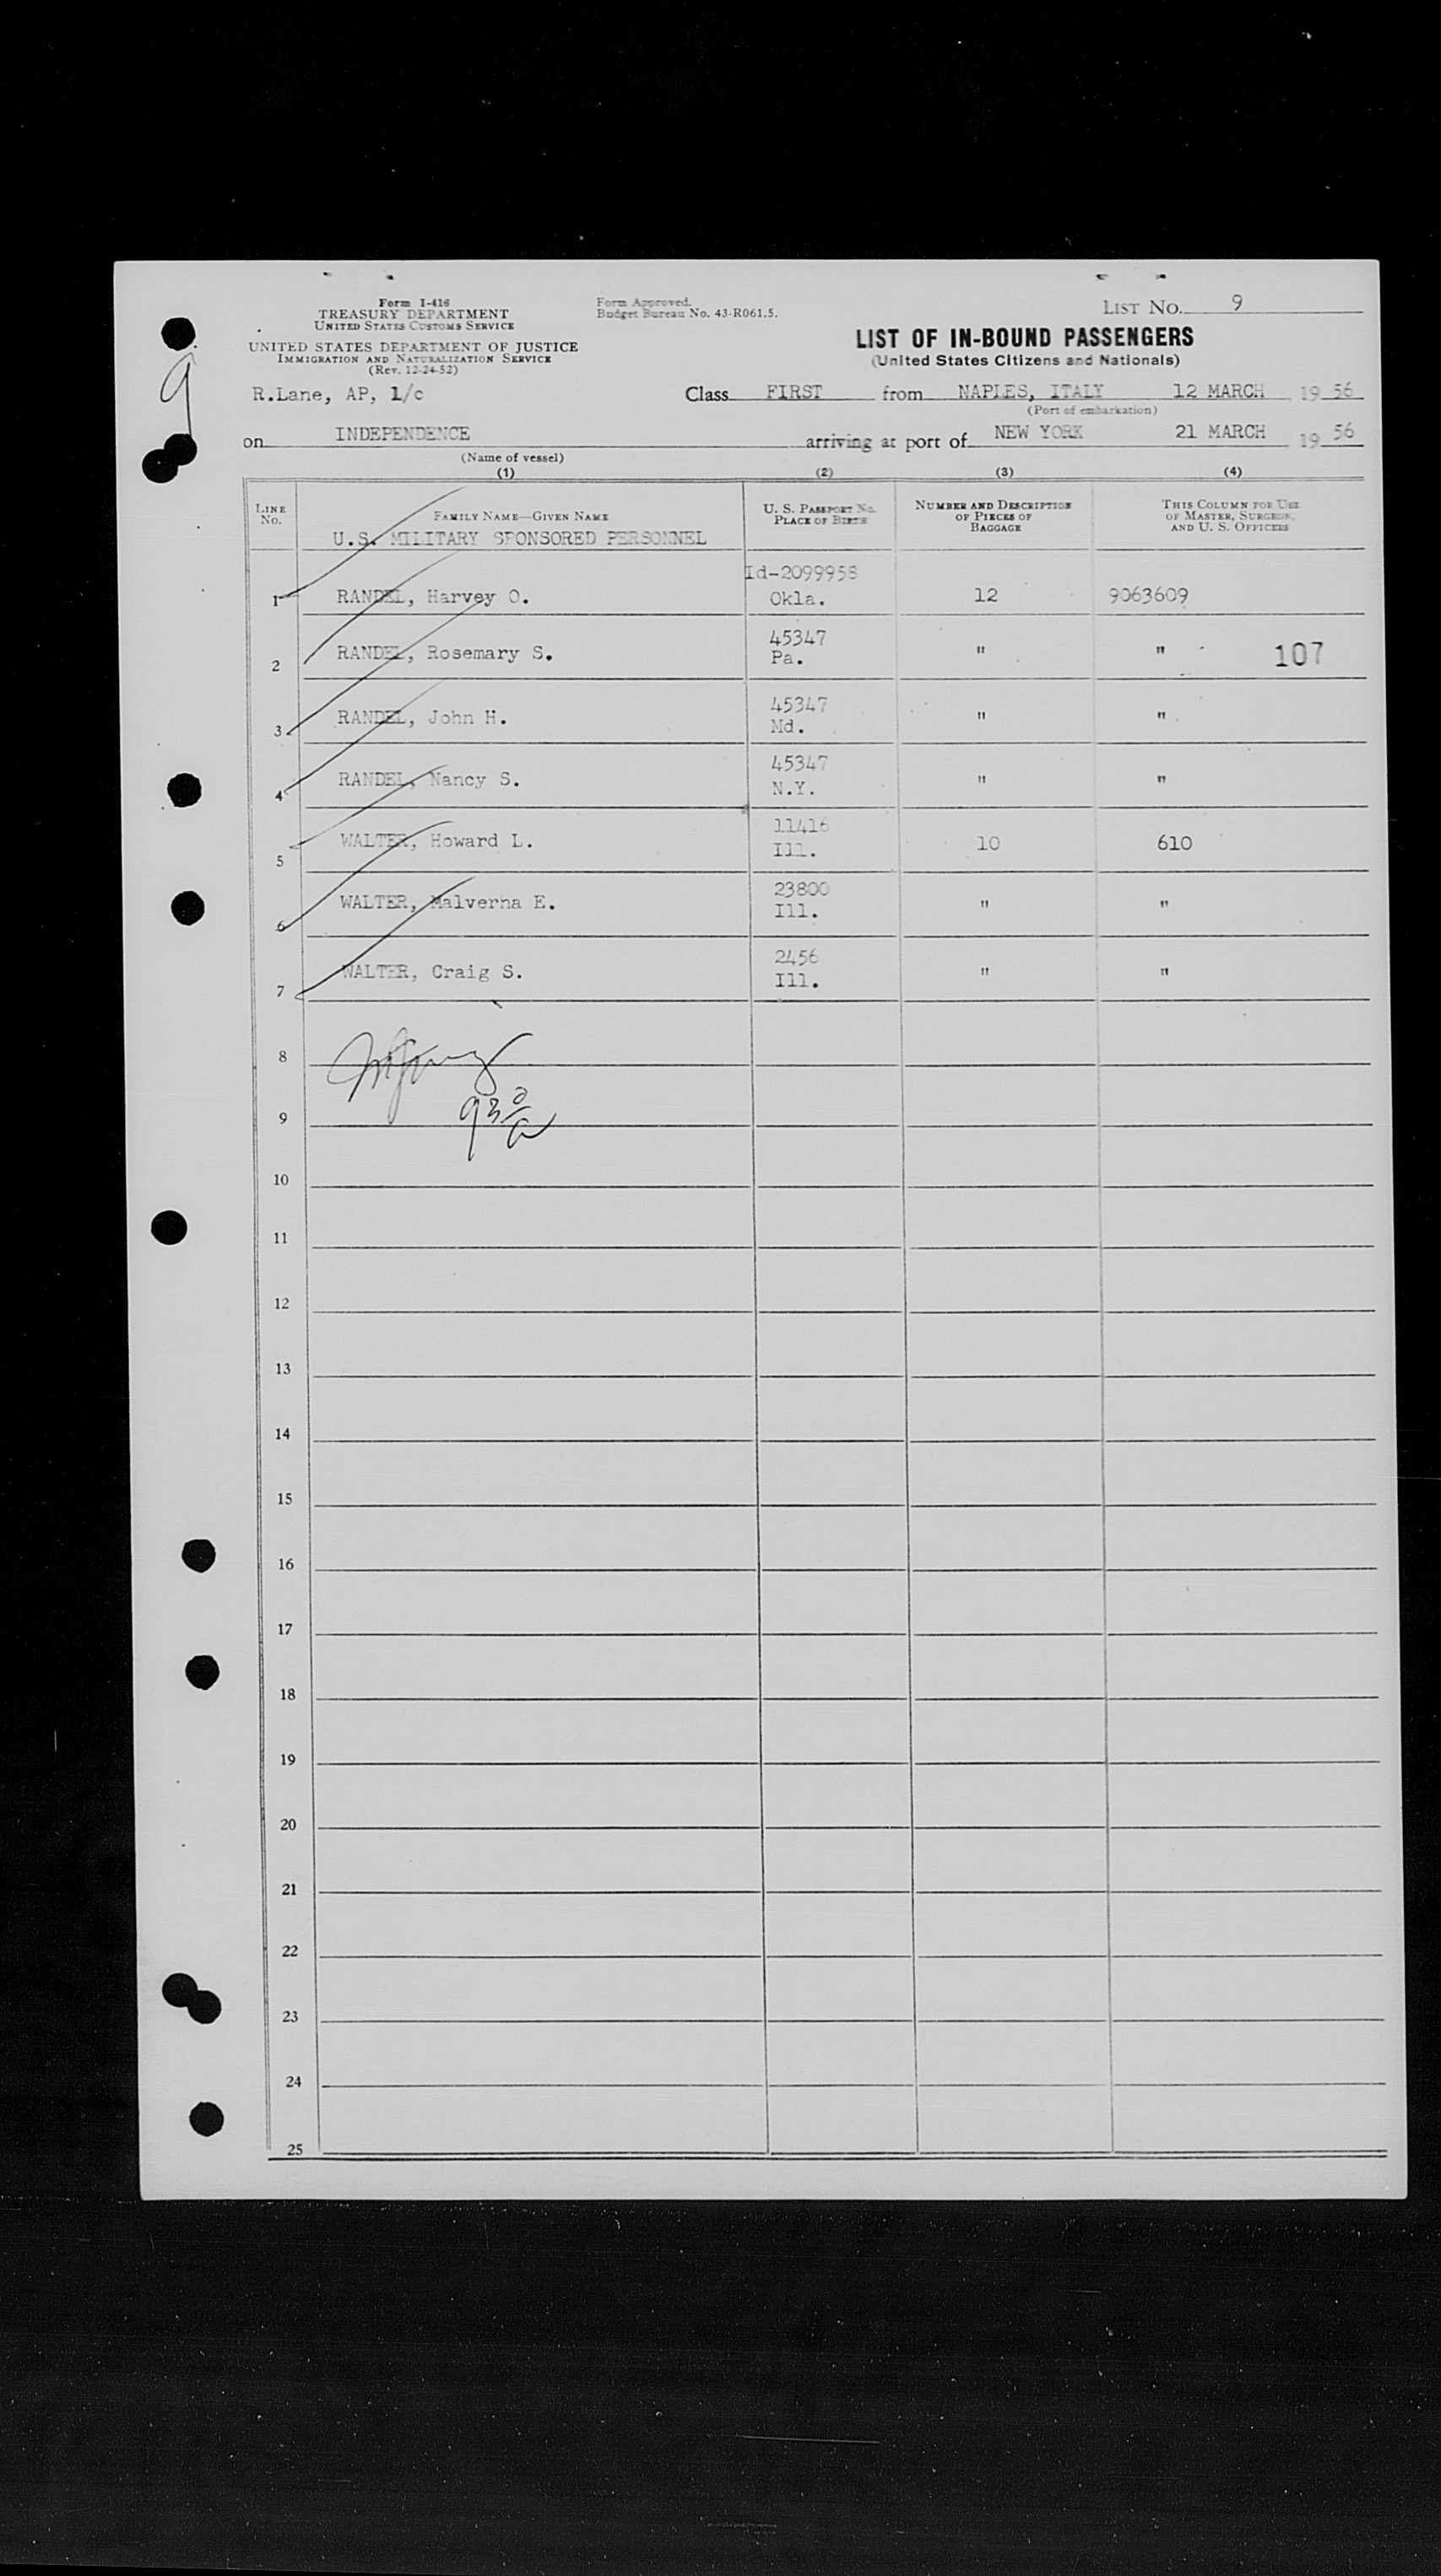 Form I-416
TREASURY DEPARTMENT
UNITED STATES CUSTOMS SERVICE
UNITED STATES DEPARTMENT OF JUSTICE
IMMIGRATION AND NATURALIZATION SERVICE
(Rev. 12-24-52)
Form Approved.
Budget Bureau No. 43-R061.5.
LIST NO. 9
LIST OF IN-BOUND PASSENGERS
(United States Citizens and Nationals)
9
R.Lane, AP, 1/c
Class FIRST from NAPLES, ITALY 12 MARCH 1956
(Port of embarkation)
on INDEPENDENCE arriving at port of NEW YORK 21 MARCH 1956
(Name of vessel)
(1) (2) (3) (4)
LINE NO.
FAMILY NAME—GIVEN NAME
U.S. PASSPORT NO.
PLACE OF BIRTH
NUMBER AND DESCRIPTION
OF PIECES OF
BAGGAGE
THIS COLUMN FOR USE
OF MASTER, SURGEON,
AND U. S. OFFICERS
U.S. MILITARY SPONSORED PERSONNEL
Id-2099958
1 RANDEL, Harvey O. Okla. 12 9063609
45347
2 RANDEL, Rosemary S. Pa. " " 107
45347
3 RANDEL, John H. Md. " "
45347
4 RANDEL, Nancy S. N.Y. " "
11416
5 WALTER, Howard L. Ill. 10 610
23800
6 WALTER, Malverna E. Ill. " "
2456
7 WALTER, Craig S. Ill. " "
8
9
10
11
12
13
14
15
16
17
18
19
20
21
22
23
24
25